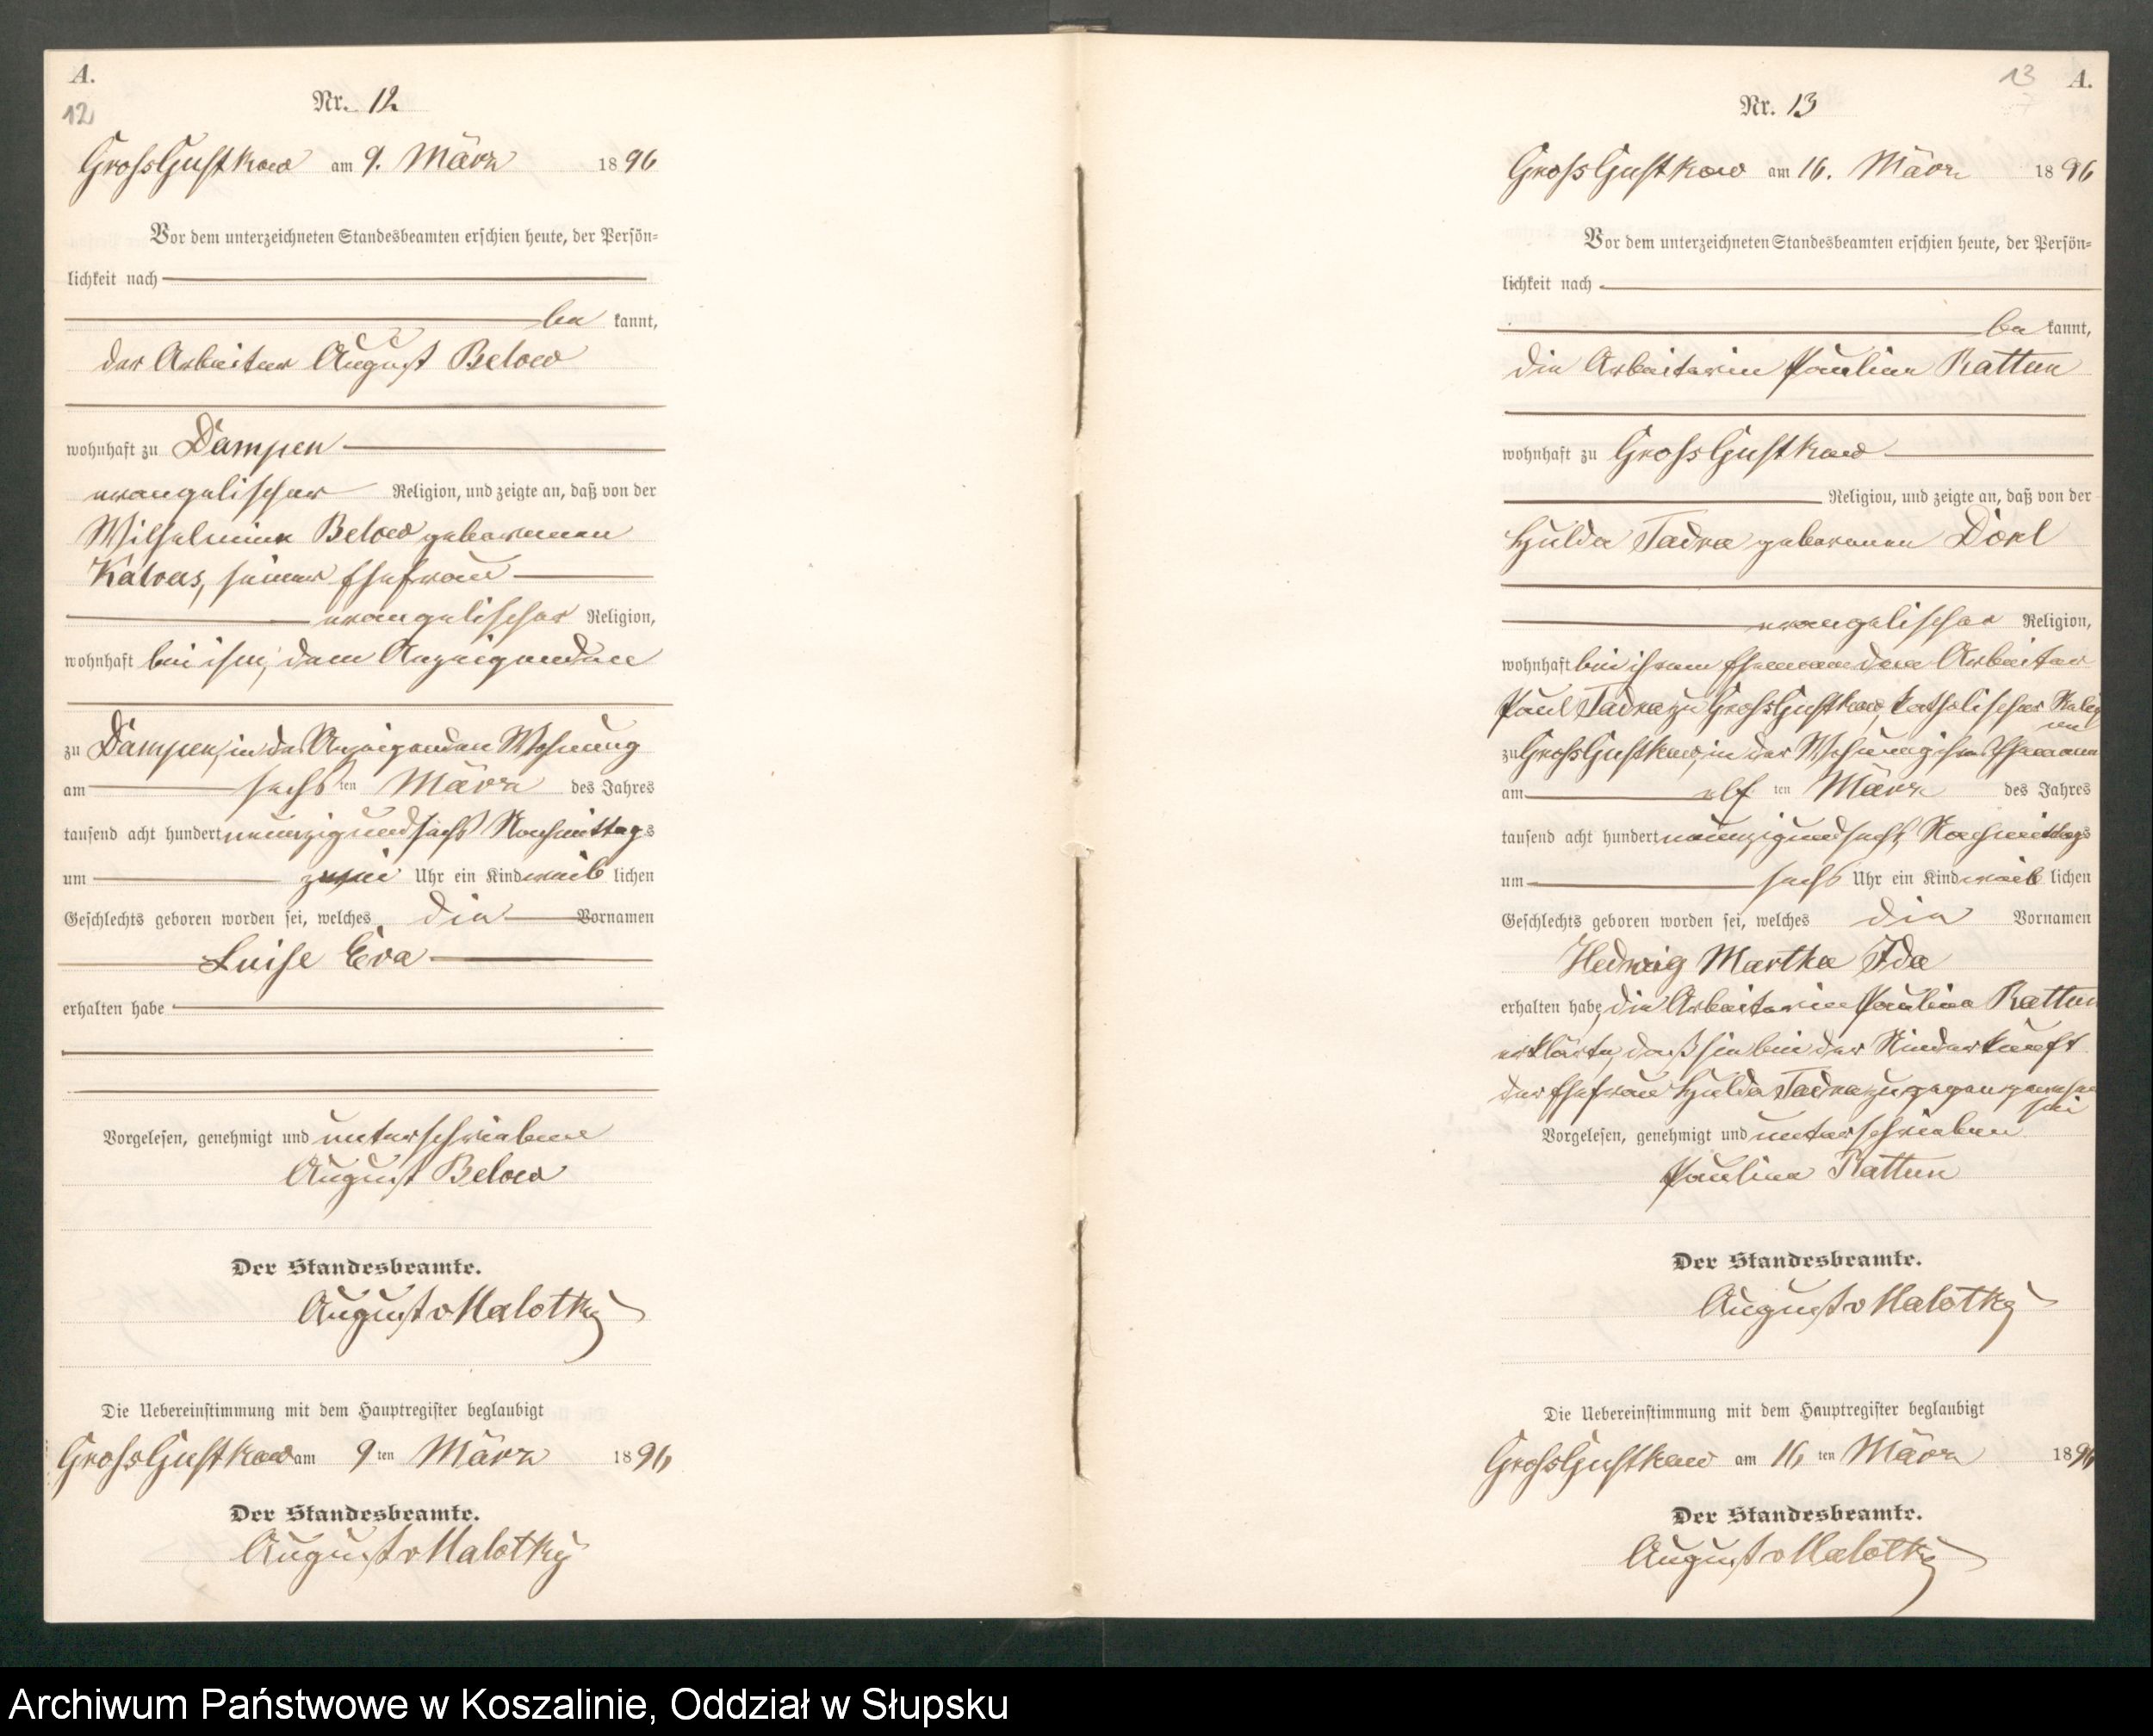 A.
12
Nr. 12
GrossGustkow am 9. März 1896
Vor dem unterzeichneten Standesbeamten erschien heute, der Persön=
lichkeit nach
be kannt,
der Arbeiter August Below
wohnhaft zu Dampen
evangelischer Religion, und zeigte an, daß von der
Wilhelmine Below geborenen
seiner Ehefrau
evangelischer Religion,
wohnhaft bei ihm, dem Anzeigenden
zu Dampen, in des Anzeigenden Wohnung
am sechs ten März des Jahres
tausend acht hundert neunzig und sechs Nachmittags
um zwei Uhr ein Kind weib lichen
Geschlechts geboren worden sei, welches die Vornamen
Luise Eva
erhalten habe
Vorgelesen, genehmigt und unterschrieben
August Below
Der Standesbeamte.
August v Malotky
Die Uebereinstimmung mit dem Hauptregister beglaubigt
GrossGustkow am 9 ten März 1896
Der Standesbeamte.
August v Malotky
13 A.
Nr. 13
GrossGustkow am 16. März 1896
Vor dem unterzeichneten Standesbeamten erschien heute, der Persön=
lichkeit nach
be kannt,
die Arbeiterin Pauline Rattun
wohnhaft zu GrossGustkow
Religion, und zeigte an, daß von der
Hulda Tadra geborenen
evangelischer Religion,
wohnhaft bei ihrem Ehemann dem Arbeiter
Paul Tadra zu GrossGustkow, katholischer Religi
on
zu GrossGustkow, in der Wohnung ihres Ehemann
am elf ten März des Jahres
tausend acht hundert neunzig und sechs Nachmittags
um sechs Uhr ein Kind weib lichen
Geschlechts geboren worden sei, welches die Vornamen
Hedwig Martha Ida
erhalten habe, die Arbeiterin Pauline Rattun
erklärte, daß sie bei der Niederkunft
der Ehefrau Hulda Tadra zugegen gewesen
sei
Vorgelesen, genehmigt und unterschrieben
Pauline Rattun
Der Standesbeamte.
August v Malotky
Die Uebereinstimmung mit dem Hauptregister beglaubigt
GrossGustkow am 16 ten März 1896
Der Standesbeamte.
August v Malotky
Archiwum Państwowe w Koszalinie, Oddział w Słupsku